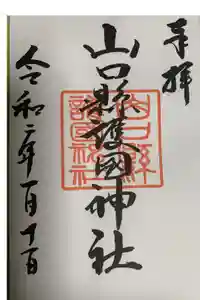 奉拝
山口縣護國神社
山口縣
護國神社
令和二年一月十一日